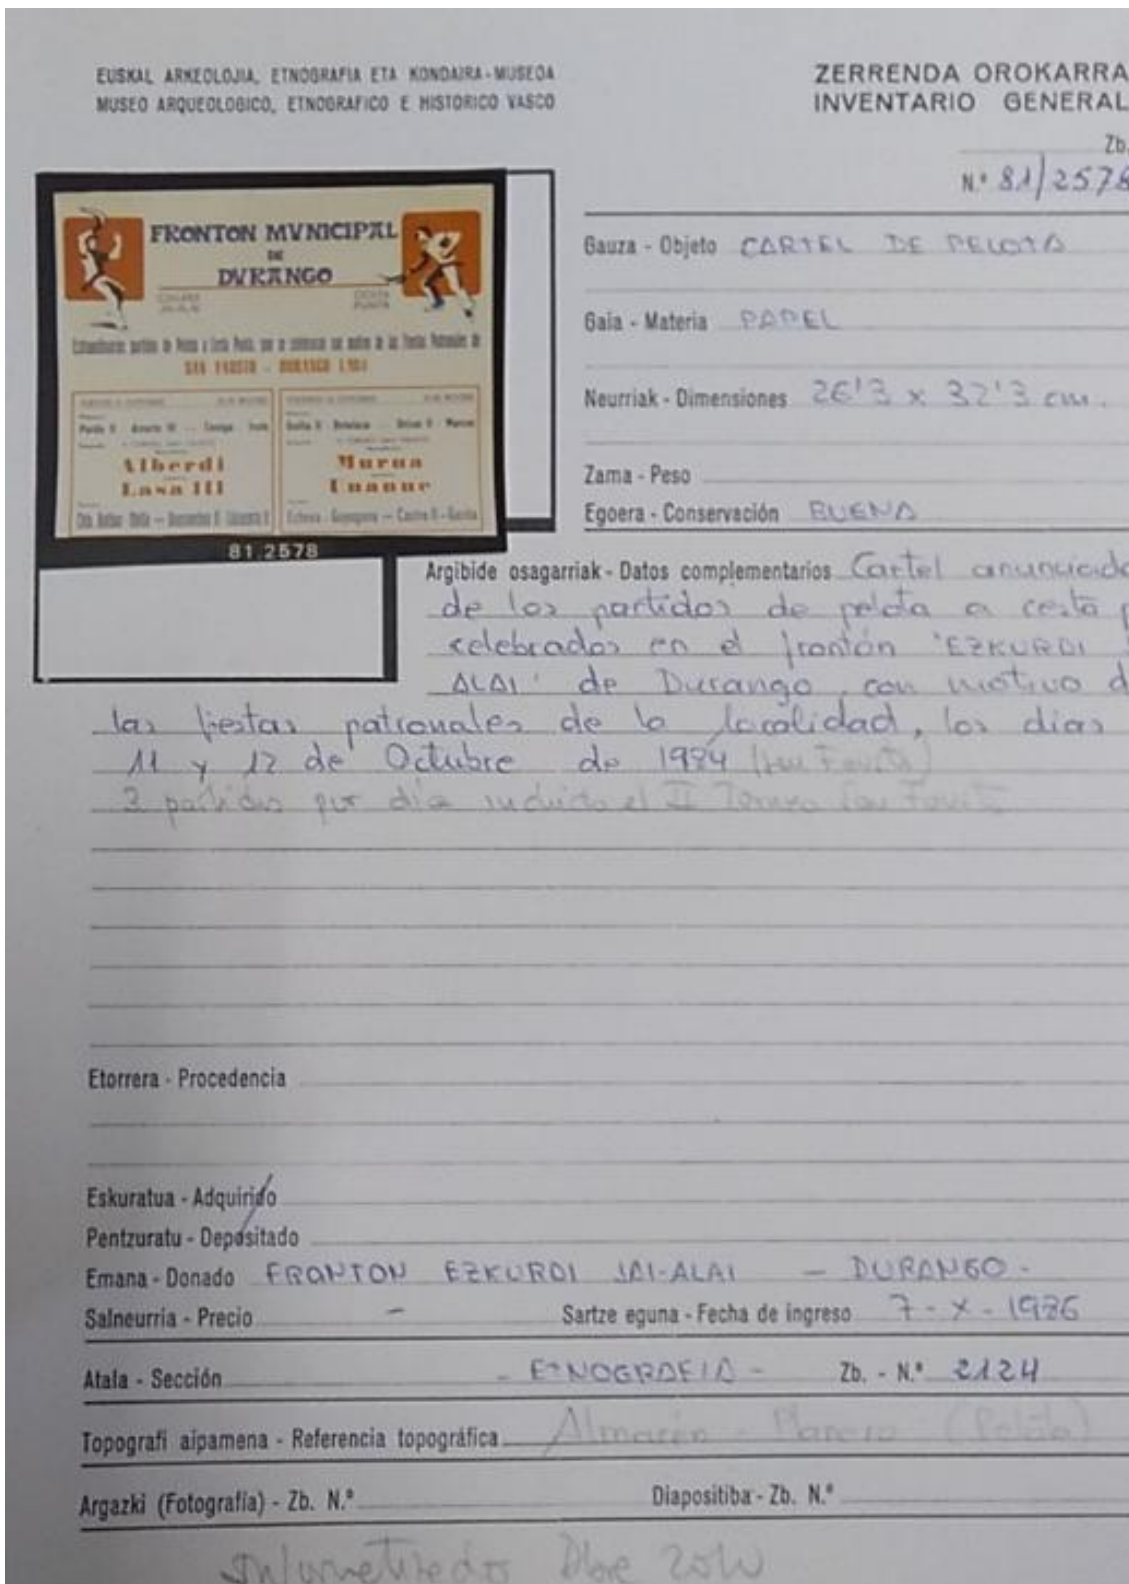 EUSKAL ARKEOLOJIA, ETNOGRAFIA ETA KONDAIRA-MUSEOA
MUSEO ARQUEOLOGICO, ETNOGRAFICO E HISTORICO VASCO
ZERRENDA OROKARRA
INVENTARIO GENERAL
Zb.
N.º 81/2578
FRONTON MVNICIPAL
DE
DVRANGO
CESTA
PUNTA
SAN FAUSTO - DURANGO 1984
Alberdi
Lasa III
Murua
Unanue
81.2578
Gauza - Objeto CARTEL DE PELOTA
Gaia - Materia PAPEL
Neurriak - Dimensiones 26'3 x 32'3 cm.
Zama - Peso
Egoera - Conservación BUENA
Argibide osagarriak - Datos complementarios Cartel
de los partidos de pelota a cesta
celebrados en el frontón "EZKURDI
ALAI" de Durango, con motivo
las fiestas patronales de la localidad, los días
11 y 12 de Octubre de 1984
3 partidos por día incluido el II Torneo San Fausto
Etorrera - Procedencia
Eskuratua - Adquirido
Pentzuratu - Depositado
Emana - Donado FRONTON EZKURDI JAI-ALAI - DURANGO -
Salneurria - Precio - Sartze eguna - Fecha de ingreso 7-X-1986
Atala - Sección - ETNOGRAFIA - Zb. - N.º 2124
Topografi aipamena - Referencia topográfica Almacén - Planero (Pelota)
Argazki (Fotografía) - Zb. N.º Diapositiba - Zb. N.º